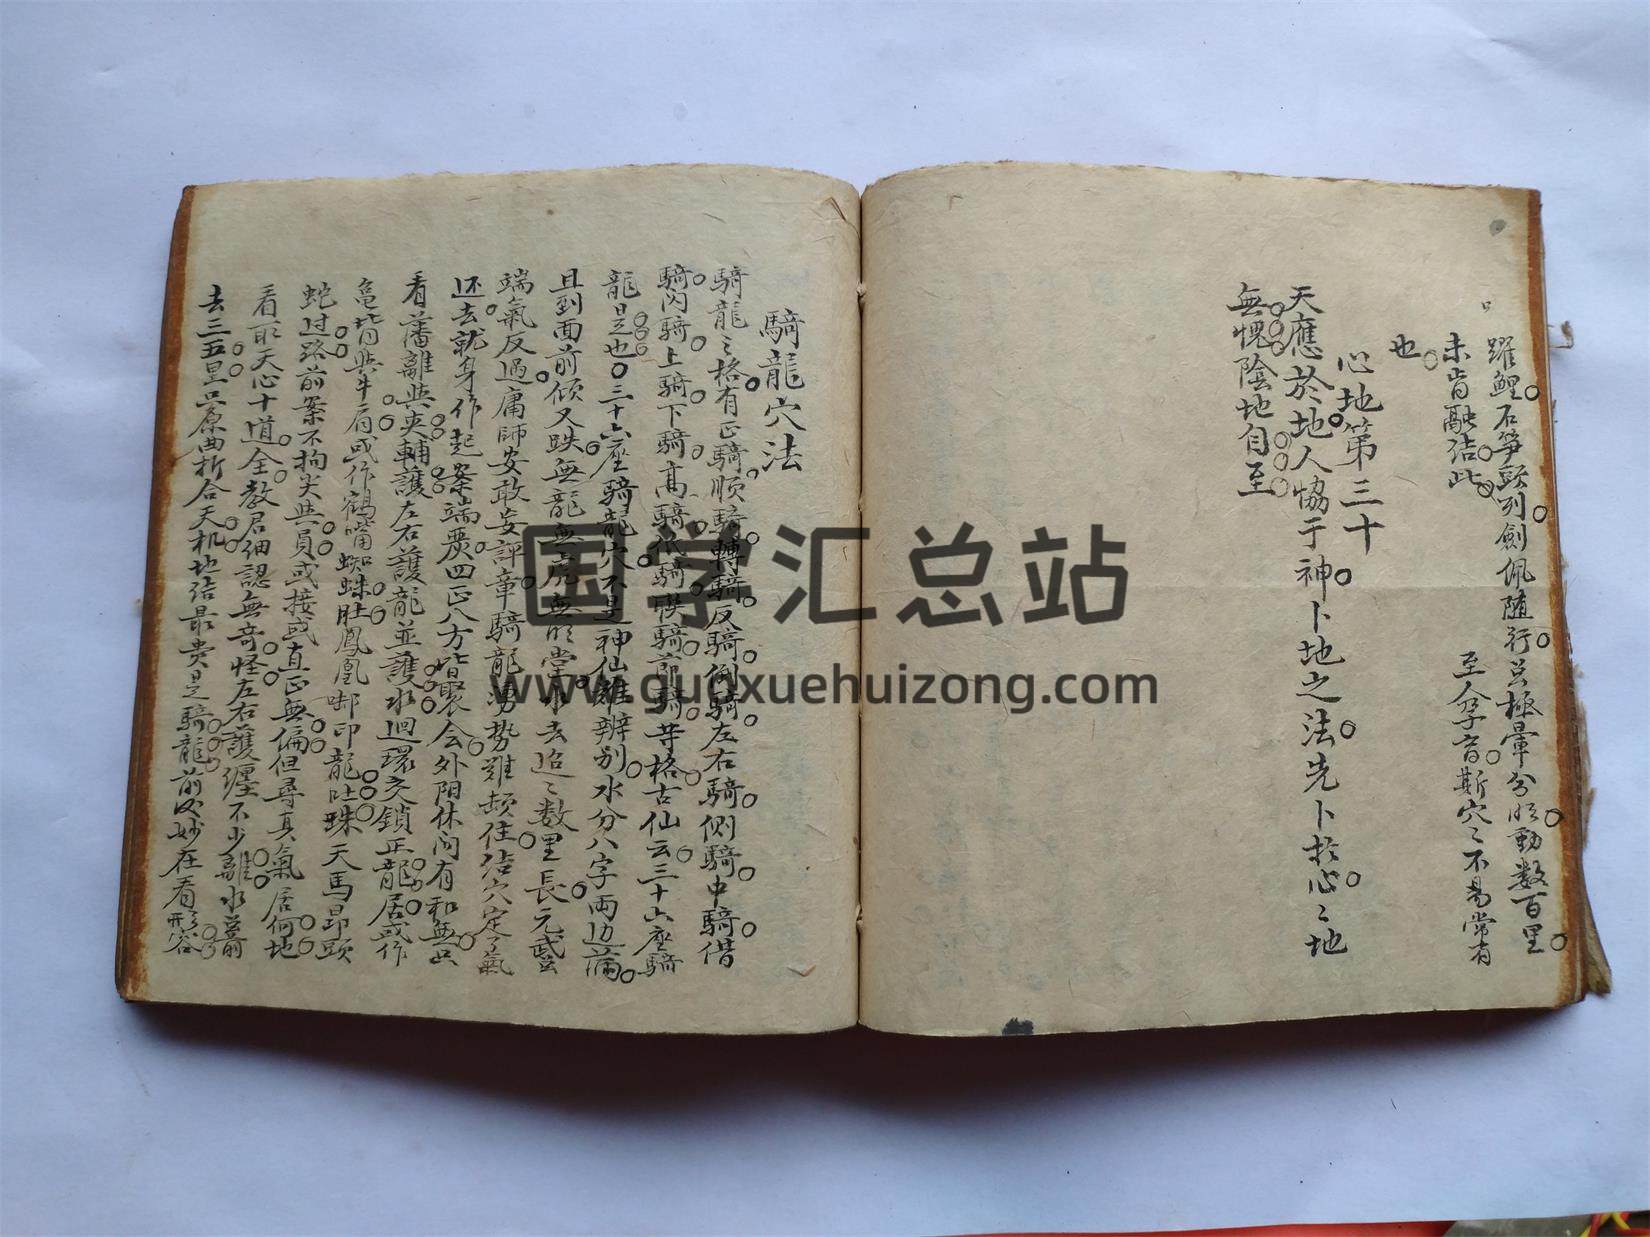 躍鯉石笋班列劍佩随行太極暈分明動数百里
未肯融结此
至分孕育斯穴〻不易常有
也
心地第三十
天應於地人恊于神卜地之法先卜於心〻地
無愧陰地自至
騎龍穴法
騎龍〻格有正騎順騎轉騎反騎倒騎左右騎側騎中騎借
騎闪騎上騎下騎高騎低騎横騎前騎等格古仙云三十六座騎
龍是也三十六座騎龍穴不是神仙难辨别水分八字兩边流
且到面前倾又跌無龍無虎無明堂水去迢〻数里長元武
端氣反過庸師安敢妄評章騎龍湧势难頓住结穴定了氣
还去就身作起案端嚴四正八方皆聚会外阳休问有和無只
看藩離與夾輔護左右護龍並護水迴環交鎖正龍居或作
亀背與牛肩或作鶴嘴蜘蛛肚鳳凰啣印龍吐珠天馬昂頭
蛇过路前案不拘尖與員或接或直正無偏但尋真氣居何地
看取天心十道全教君细認無奇怪左右護纏不少離水前
去三五里只原曲折合天机地结最贵是騎龍前後妙在看形容
国学汇总站
www.guoxuehuizong.com